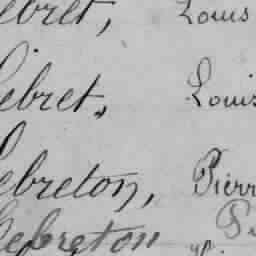 ebret, Louis
Lebret, Louis
Lebreton, Pierr
Lebreton